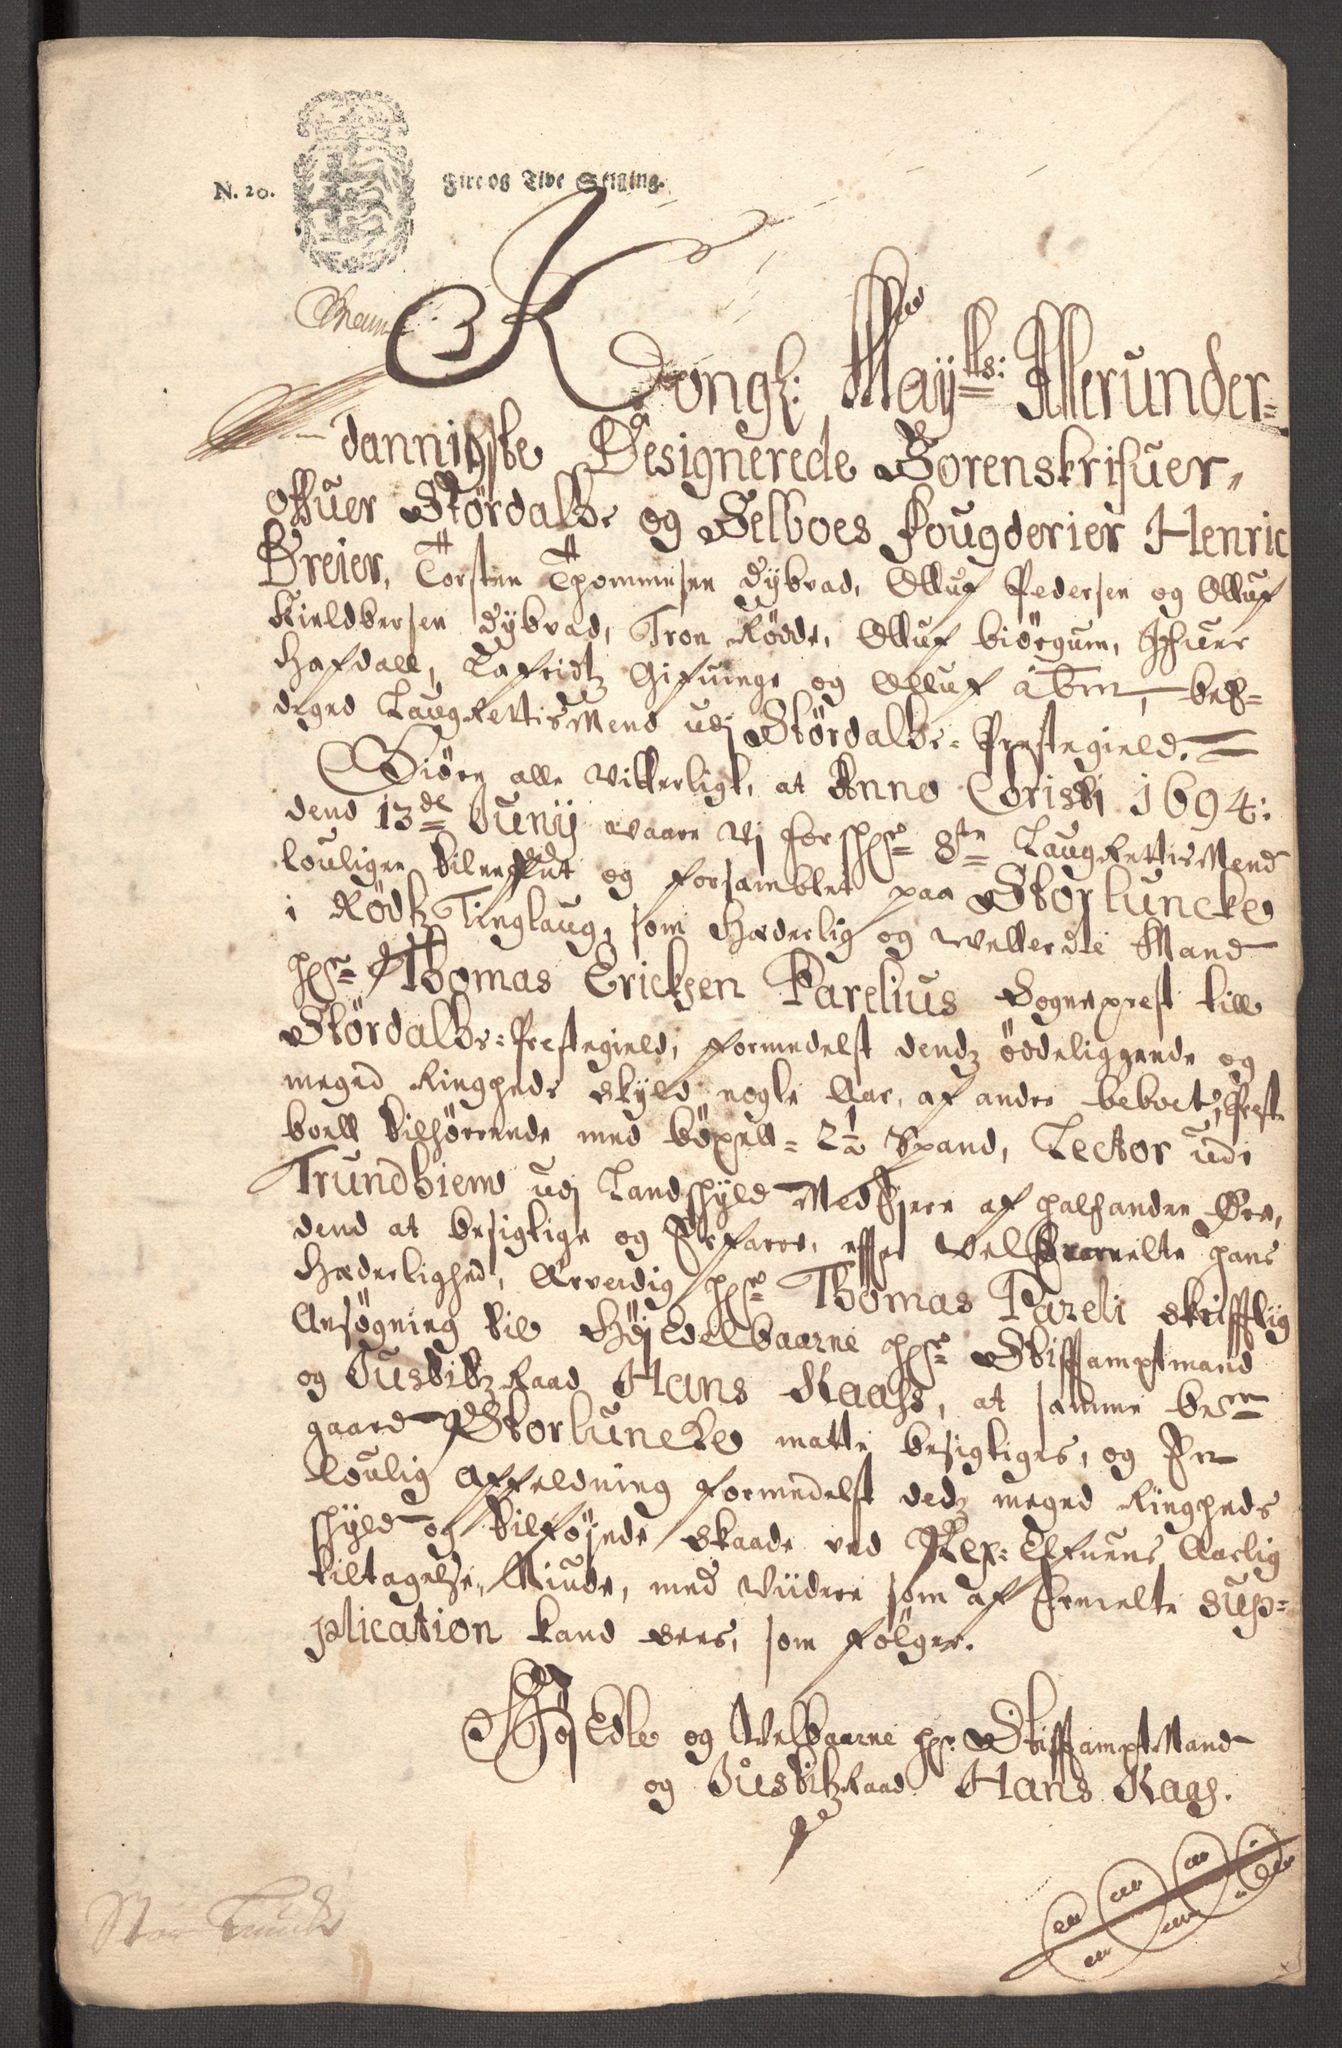 N. 20. Fire og Tive Skilling.
Kongl: Mayts: Allerunder-
dannigste Designerede Sorenskrifuer,
offuer Størdahls og Selboes fougderier Henric
Dreier, Torsten Thommesen Dybvad, Olluf Pedersen og Olluf
Kieldbersen Dybvad, Tron Rødde, Olluf biörgum, Ifuer
Hafdall, og Olluf
Laugrettismend udj Størdahls-Prestegield.
Giöre alle vitterligt, at Anno Christi 1694:
dend 13de Junij waare vj 8te Laugrettismend
louligen og forsamblet paa Storluncke
i Rødtz Tinglaug, som Hæderlig og wellerdte Mand
hr Thomas Ericksen Parelius Sogneprest till
Størdahls-Prestegield, formedelst dendz øddeliggende og
meged Ringheds skyld nogle Aar, af andre beboet, Prest
boell tilhørrende med böxell- 2½ Spand, Lector udi
Trundhiem udj Landskyld Med af halfanden Øre,
dend at besigtige og erfare, efter hans
Hæderlighed, Ærverdig hr Thomas Pareli skrifftlig
Ansøgning til Høj Edelbaarne hr Stifftamptmand
og Justitz Raad Hans Kaass, at samme
gaard Storluncke matte besigtiges, og
loulig Affeldning formedelst dedz meged Ringheds
skyld og tilföjede skaade ved Elfuens Aarlig
tiltagelse, Niude, med viidere som af sup-
plication kand sees, som følger.
Høj Edle og Velbaarne hr: Stifftampt Mand
og Justitz Raad Hans Kaas.
Stor Lunck